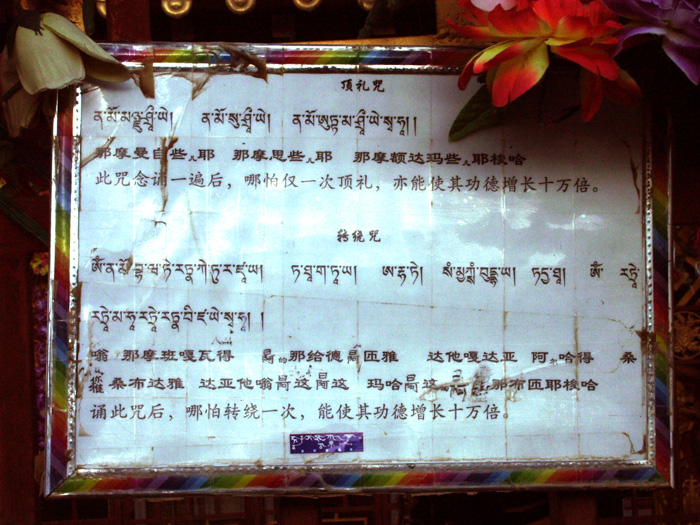 顶礼咒
ན་མོ་མཉྫུ་ཤྲཱི་ཡེ། ན་མོ་སུ་ཤྲཱི་ཡེ། ན་མོ་ཨུཏྟ་མ་ཤྲཱི་ཡེ་སྭཱ་ཧཱ། །
那摩曼自些入耶 那摩思些入耶 那摩额达玛些入耶梭哈
此咒念诵一遍后，哪怕仅一次顶礼，亦能使其功德增长十万倍。
转绕咒
ཨོཾ་ན་མོ་ ཏེ་རཏྣ་ཀེ་ཏུ་ར་ཛཱ་ཡ། ཏ་ཐཱ་ག་ཏཱ་ཡ། ཨ་རྷ་ཏེ། སཾ་མྱཀྶཾ་བུདྡྷཱ་ཡ། ཏདྱ་ཐཱ། ཨོཾ་ རཏྣེ་
རཏྣེ་མ་ཧཱ་རཏྣེ་རཏྣ་བི་ཛ་ཡེ་སྭཱ་ཧཱ། །
嗡 那摩班嘎瓦得 那给德 匝雅 达他嘎达亚 阿 哈得 桑
桑布达雅 达亚他嗡 这 这 玛哈 这 那布匝耶梭哈
诵此咒后，哪怕转绕一次，能使其功德增长十万倍。